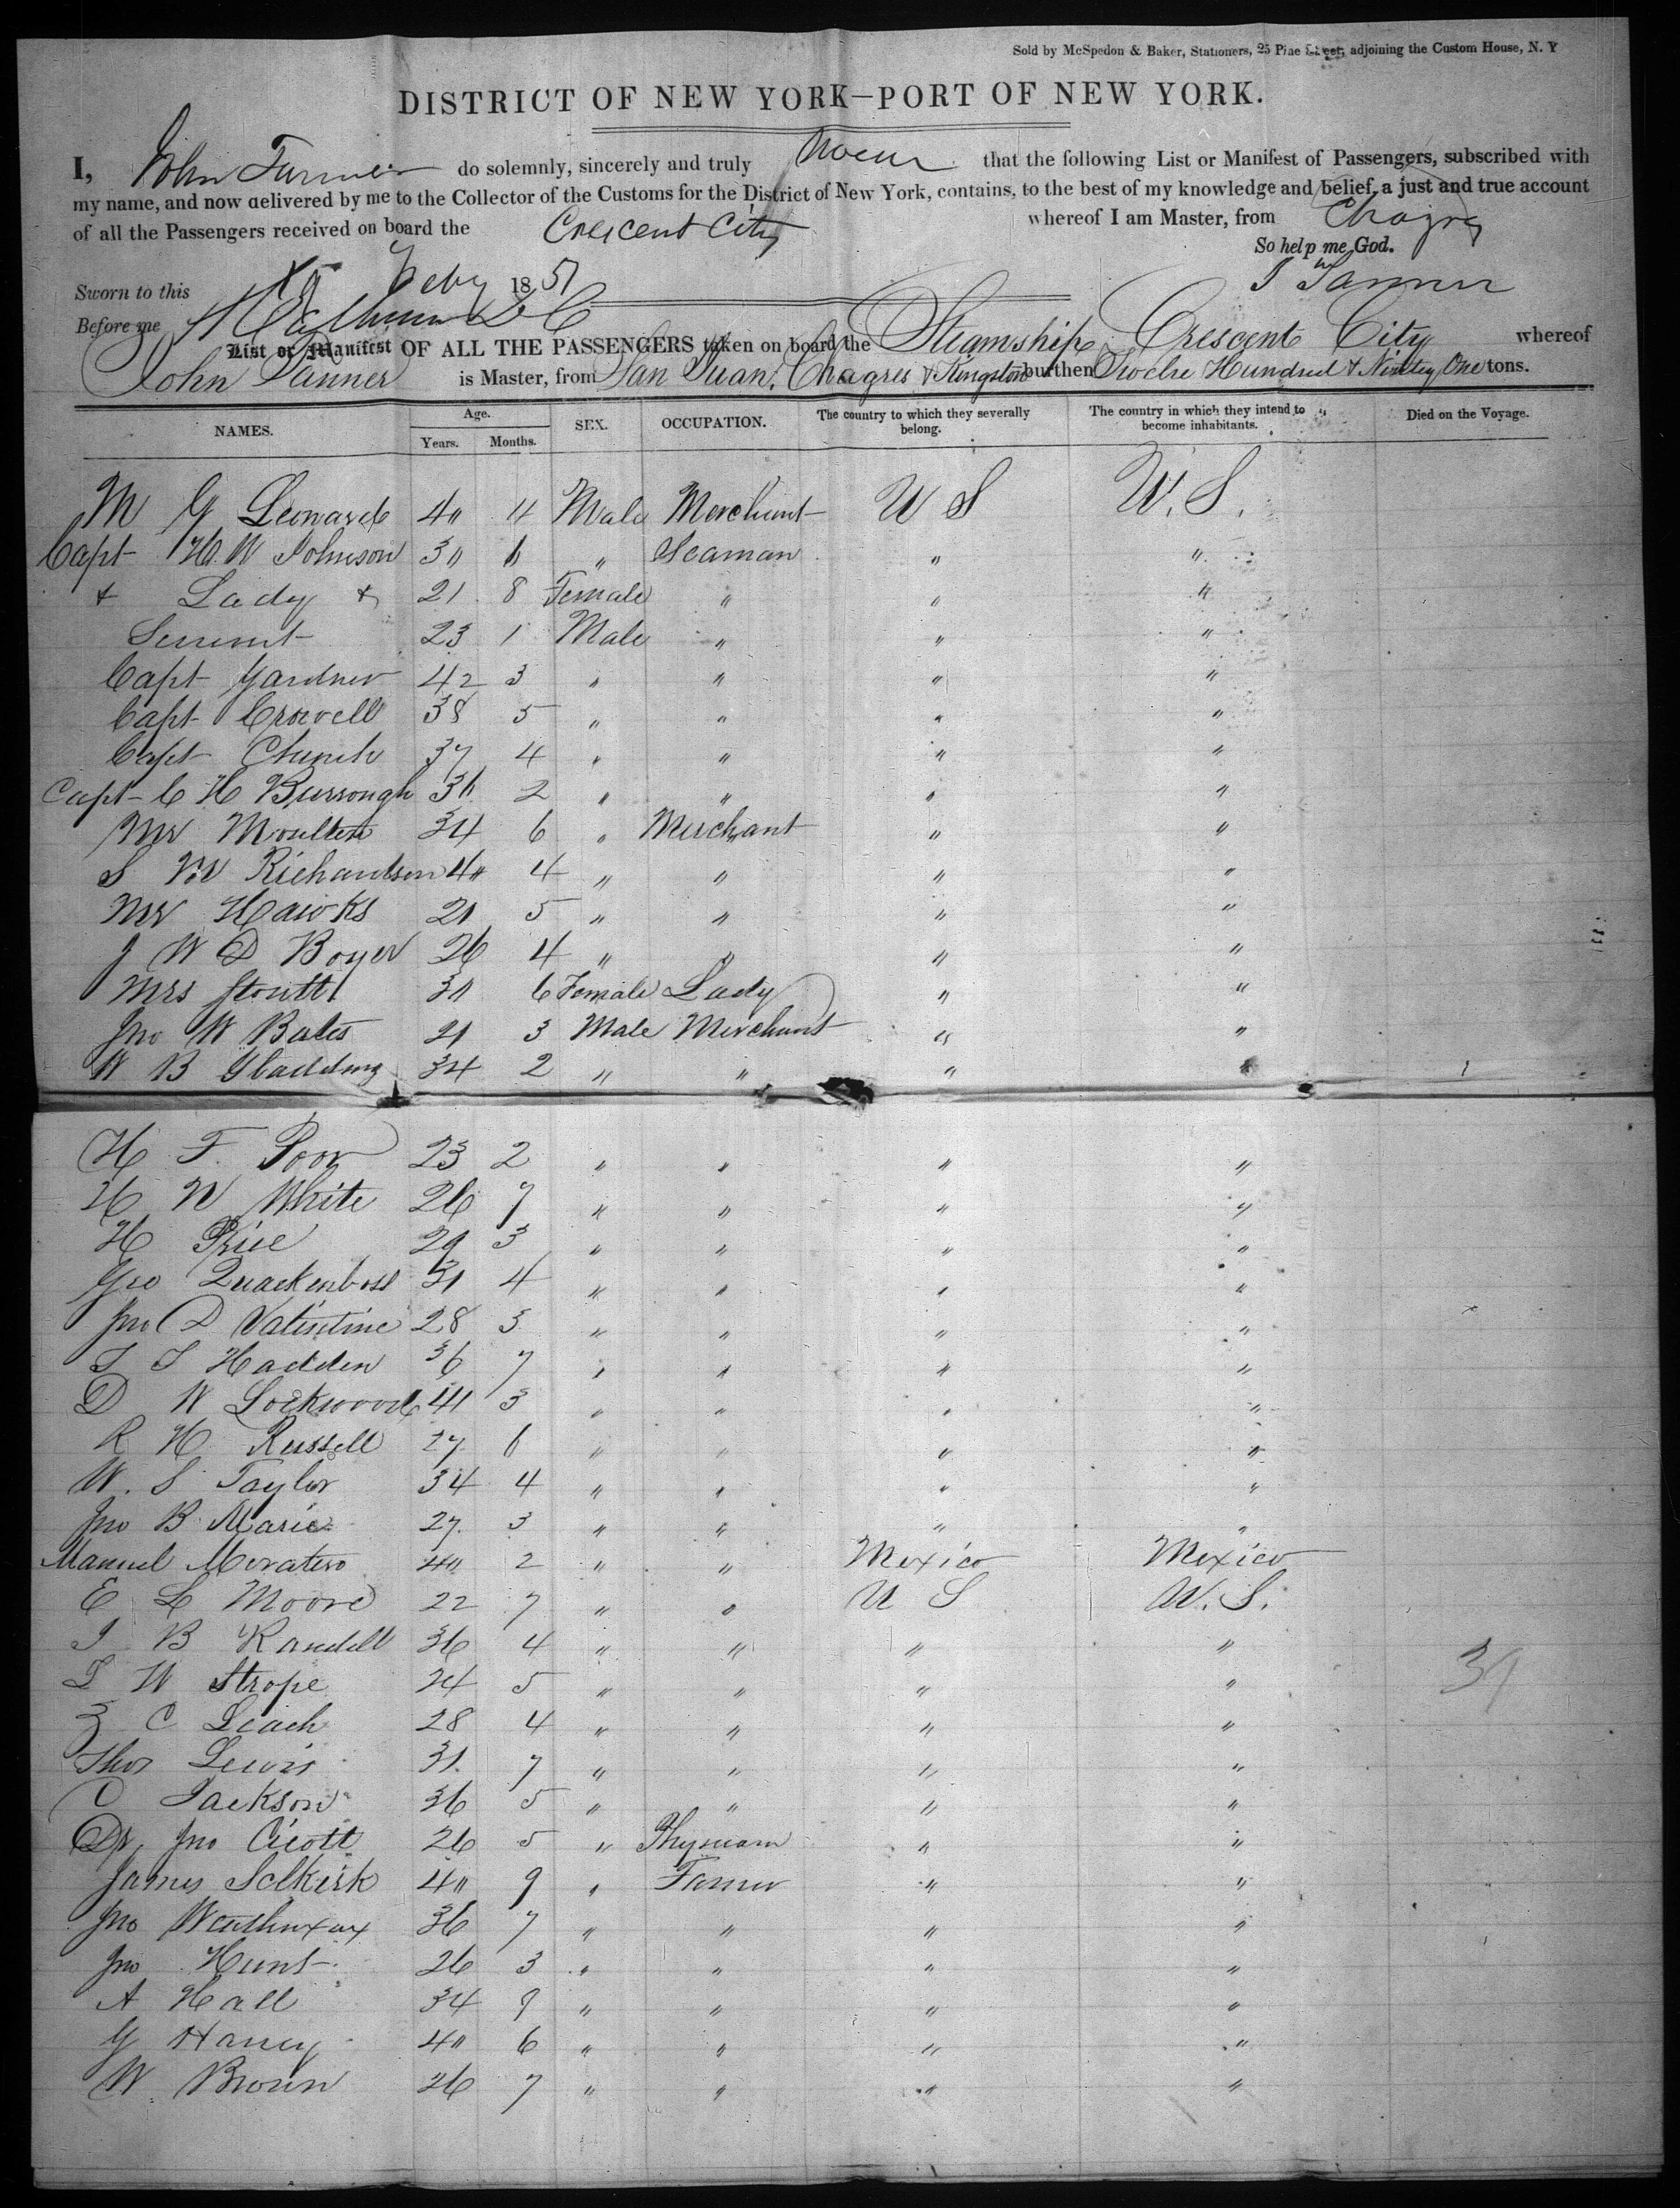 Sold by McSpedon & Baker, Stationers, 25 Pine Street, adjoining the Custom House, N. Y
DISTRICT OF NEW YORK—PORT OF NEW YORK.
I, John Tanner do solemnly, sincerely and truly swear that the following List or Manifest of Passengers, subscribed with
my name, and now delivered by me to the Collector of the Customs for the District of New York, contains, to the best of my knowledge and belief, a just and true account
of all the Passengers received on board the Crescent City whereof I am Master, from Chagres
So help me God.
Sworn to this Feby 1851 J Tanner
Before me
List or Manifest OF ALL THE PASSENGERS taken on board the Steamship Crescent City whereof
John Tanner is Master, from San Juan, Chagres & Kingston burthen Twelve Hundred & Ninety One tons.
NAMES. Age. Years. Months. SEX. OCCUPATION. The country to which they severally belong. The country in which they intend to become inhabitants. Died on the Voyage.
M G Leonard 4" 4 Male Merchant U S U. S.
Capt H. W Johnson 3" 6 " Seaman " "
& Lady & 21 8 Female " " "
Servant 23 1 Male " " "
Capt Gardner 42 3 " " " "
Capt Crowell 38 5 " " " "
Capt Church 37 4 " " " "
Capt C H Burrough 36 2 " " " "
Mr Moulton 34 6 " Merchant " "
S W Richardson 4" 4 " " " "
Mr Hawks 21 5 " " " "
J W D Boyer 26 4 " " " "
Mrs Stoutt 31 6 Female Lady " "
Jno W Bates 21 3 Male Merchant " "
W B Gladding 34 2 " " " "
H F. Poor 23 2 " " " "
H W White 26 7 " " " "
H Price 29 3 " " " "
Geo Quackenboss 31 4 " " " "
Jno D Valintine 28 3 " " " "
S S Hadden 36 7 " " " "
D W Lockwood 41 3 " " " "
R H Russell 27 6 " " " "
W. S Taylor 34 4 " " " "
Jno B Marie 27 3 " " " "
Manuel Moratero 4" 2 " " Mexico Mexico
E L Moore 22 7 " " U S U. S.
J B Randell 36 4 " " " "
L W Strope 24 5 " " " " 39
Z C Leach 28 4 " " " "
Thos Lewis 31 7 " " " "
C Jackson 36 5 " " " "
Dr, Jno Cicott 26 5 " Physician " "
James Selkirk 4" 9 " Farmer " "
Jno 36 7 " " " "
Jno Hunt 26 3 " " " "
A Hall 34 9 " " " "
G Haney 4" 6 " " " "
W. Brown 26 7 " " " "